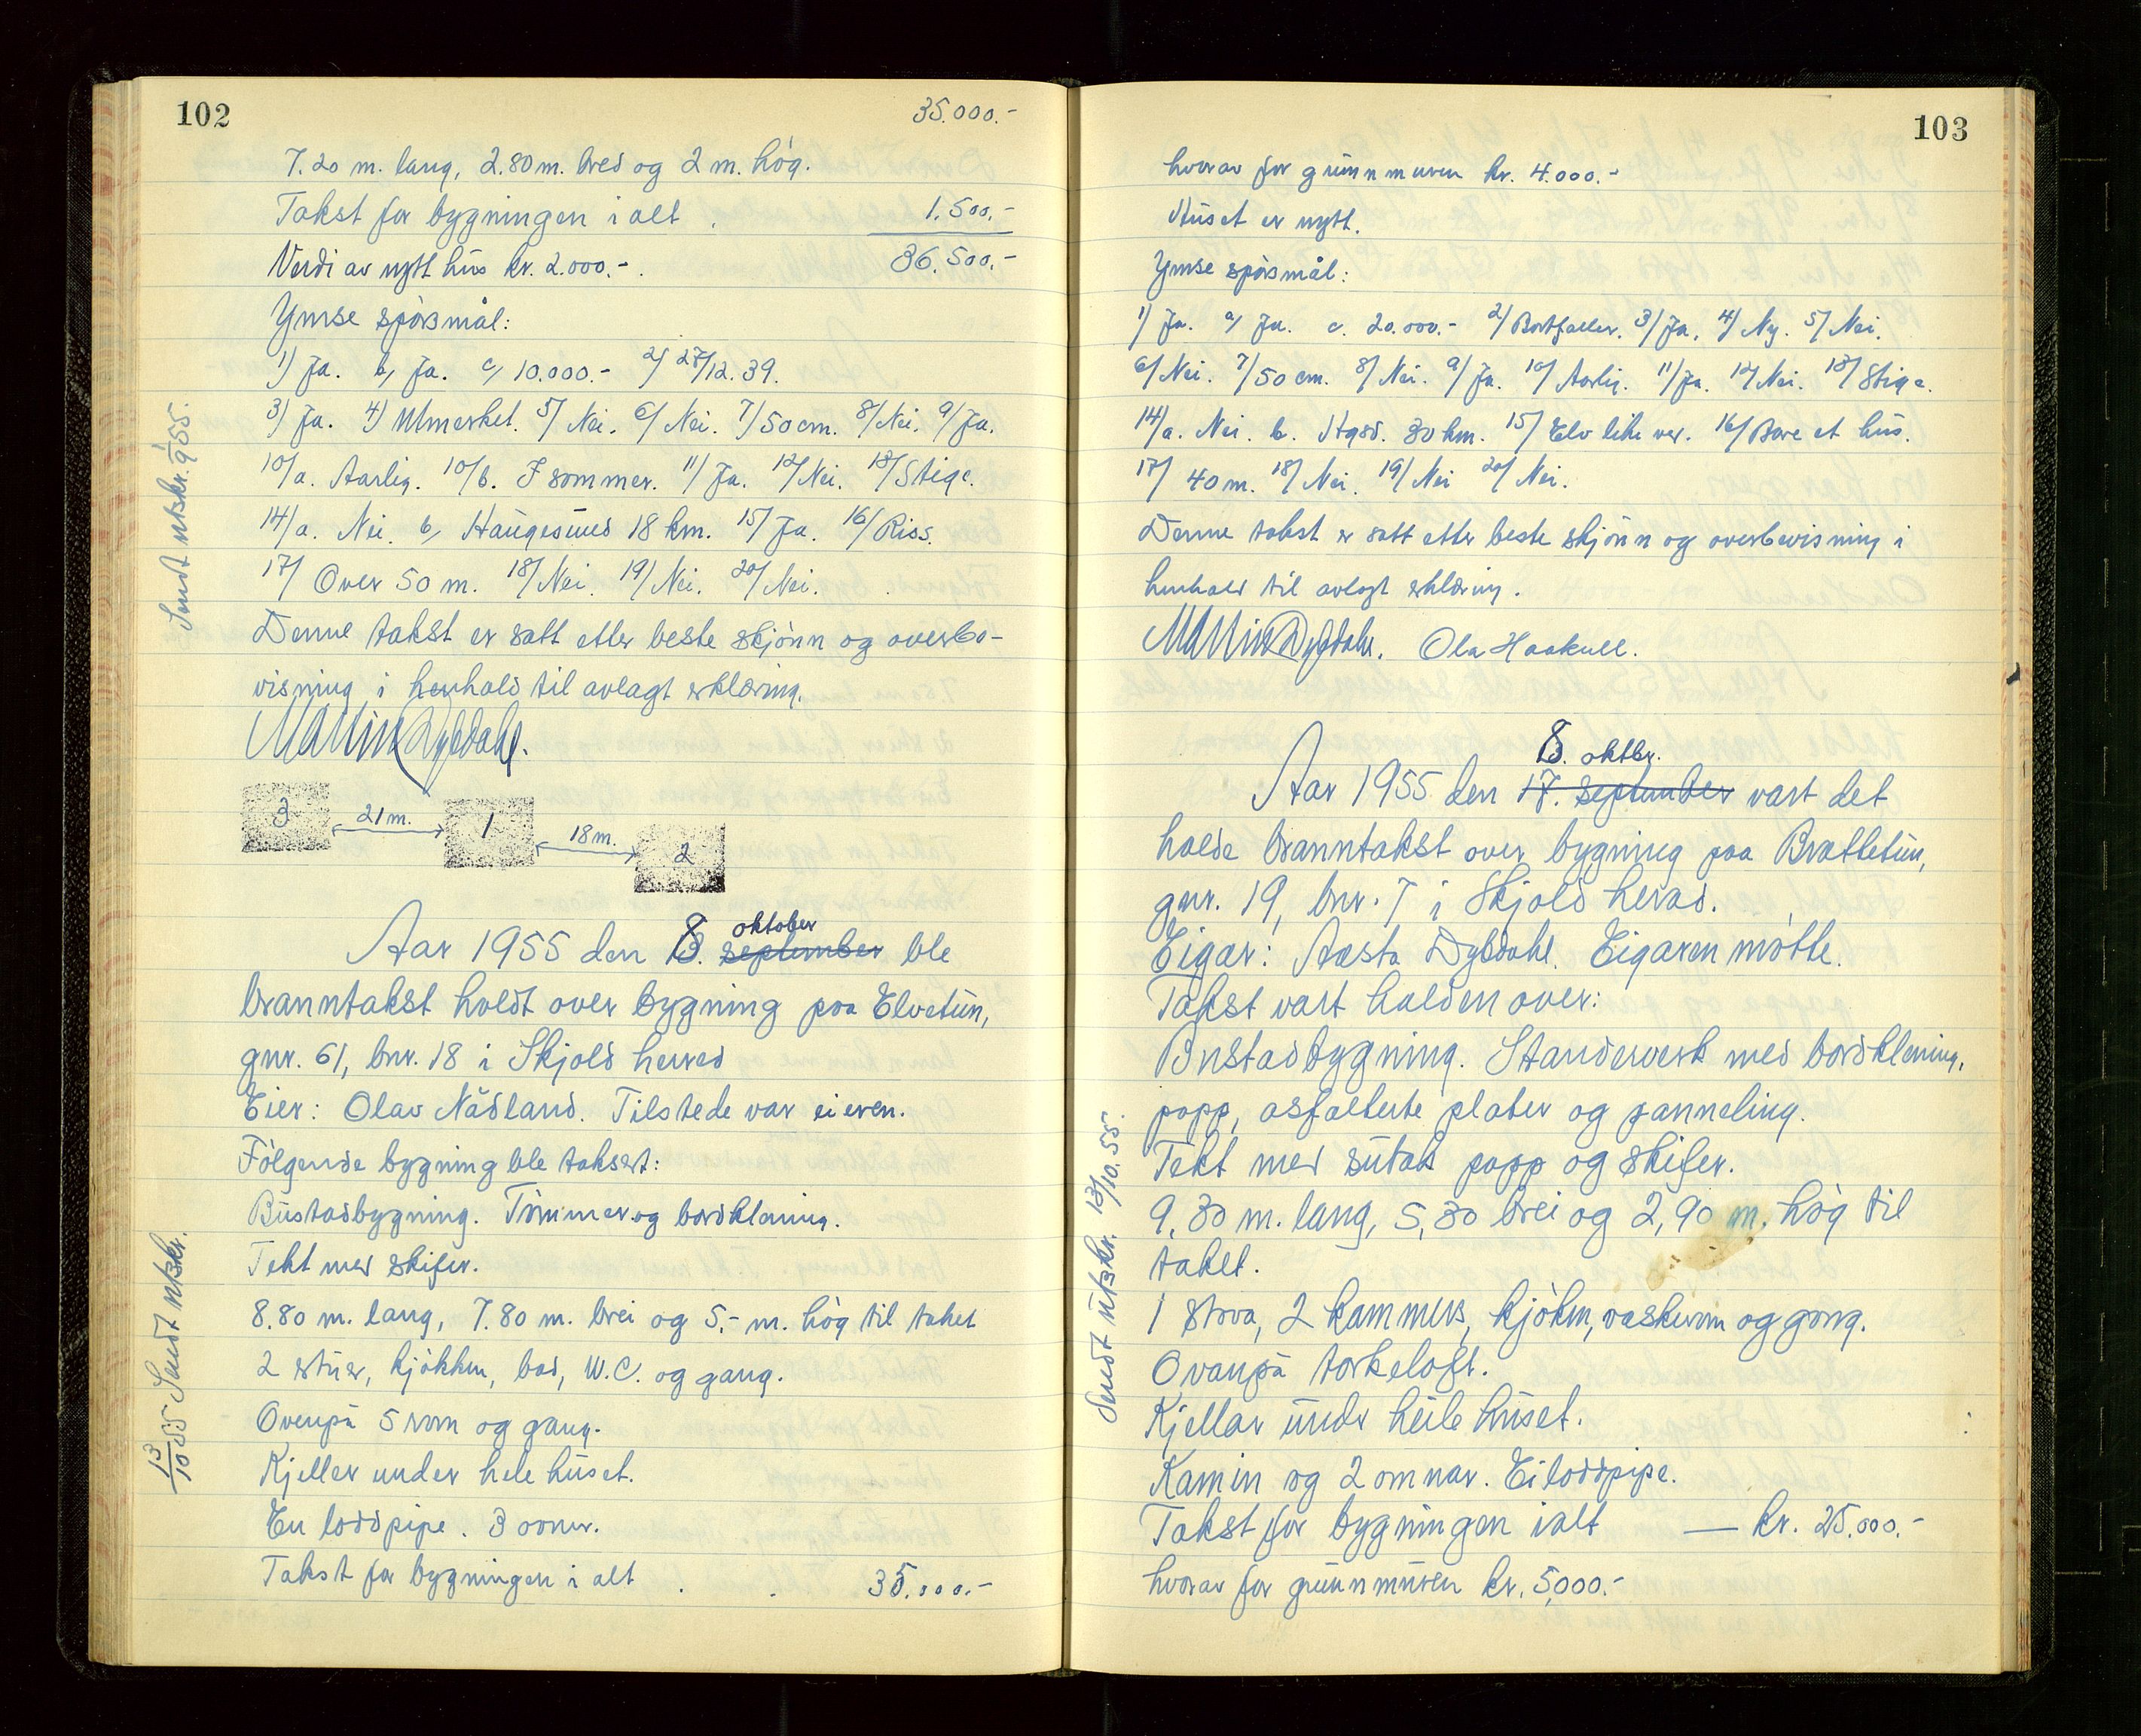 102
35.000.-
7.20 m. lang, 2.80 m. bred og 2 m. hög.
Takst for bygningen i alt . 1.500.-
Verdi av nytt hus kr. 2.000.- . 36.500.-
Ymse spörsmål:
1) Ja. b, Ja. c, 10.000.- 2/ 27/12.39.
3) Ja. 4) Utmerket. 5/ Nei. 6/ Nei. 7/ 50 cm. 8/ Nei. 9/ Ja.
10/a. Aarlig. 10/b. I sommer. 11/ Ja. 12/ Nei. 13/ Stige.
14/a. Nei. b, Haugesund 18 km. 15/ Ja. 16/ Riss.
17/ Over 50 m. 18/ Nei. 19/ Nei. 20/ Nei.
Denne takst er satt etter beste skjönn og overbe-
visning i henhold til avlagt erklæring.
Martin Dybdahl.
Sendt utskr. 1/9 55.
3 21 m. 1 18 m. 2
Aar 1955 den 8. september oktober ble
branntakst holdt over bygning paa Elvetun,
gnr. 61, bnr. 18 i Skjold herred
Eier: Olav Nådland. Tilstede var eieren.
Fölgende bygning ble taksert:
Bustadbygning. Tömmer og bordklening.
Tekt med skifer.
8.80 m. lang, 7.80 m. brei og 5,- m. hög til taket
2 stuer, kjökken, bad, W.C. og gang.
Ovenpå 5 rom og gang.
Kjeller under hele huset.
En loddpipe. 3 ovner.
Takst for bygningen i alt . . 35.000.-
13/10 55 Sendt utskr.
103
hvorav for grunnmuren kr. 4.000.-
Huset er nytt.
Ymse spörsmål:
1) Ja. a, Ja. c. 20.000.- 2/ Bortfaller. 3/ Ja. 4/ Ny. 5/ Nei.
6/ Nei. 7/ 50 cm. 8/ Nei. 9/ Ja. 10/ Aarlig. 11/ Ja. 12/ Nei. 13/ Stige.
14/a. Nei. b. Hgsd. 30 km. 15/ Elv like ved. 16/ Bare et hus.
17/ 40 m. 18/ Nei. 19/ Nei 20/ Nei.
Denne takst er satt etter beste skjönn og overbevisning i
henhold til avlagt erklæring.
Martin Dybdahl. Ola Haakull.
Aar 1955 den 17. september 8. oktbr. vart det
halde branntakst over bygning paa Brattetun,
gnr. 19, bnr. 7 i Skjold herad.
Eigar: Aasta Dybdahl. Eigaren mötte.
Takst vart halden over:
Bustadbygning. Standerverk med bordklening,
papp, asfalterte plater og panneling.
Tekt med sutak papp og skifer.
9,30 m. lang, 5,30 brei og 2,90 m. hög til
taket.
1 stova, 2 kammers, kjöken, vaskerom og gang.
Ovanpå törkeloft.
Kjellar under heile huset.
Kamin og 2 omnar. Ei loddpipe.
Takst for bygningen ialt — kr. 25.000.-
hvorav for grunnmuren kr. 5,000.-
Sendt utskr. 13/10.55.